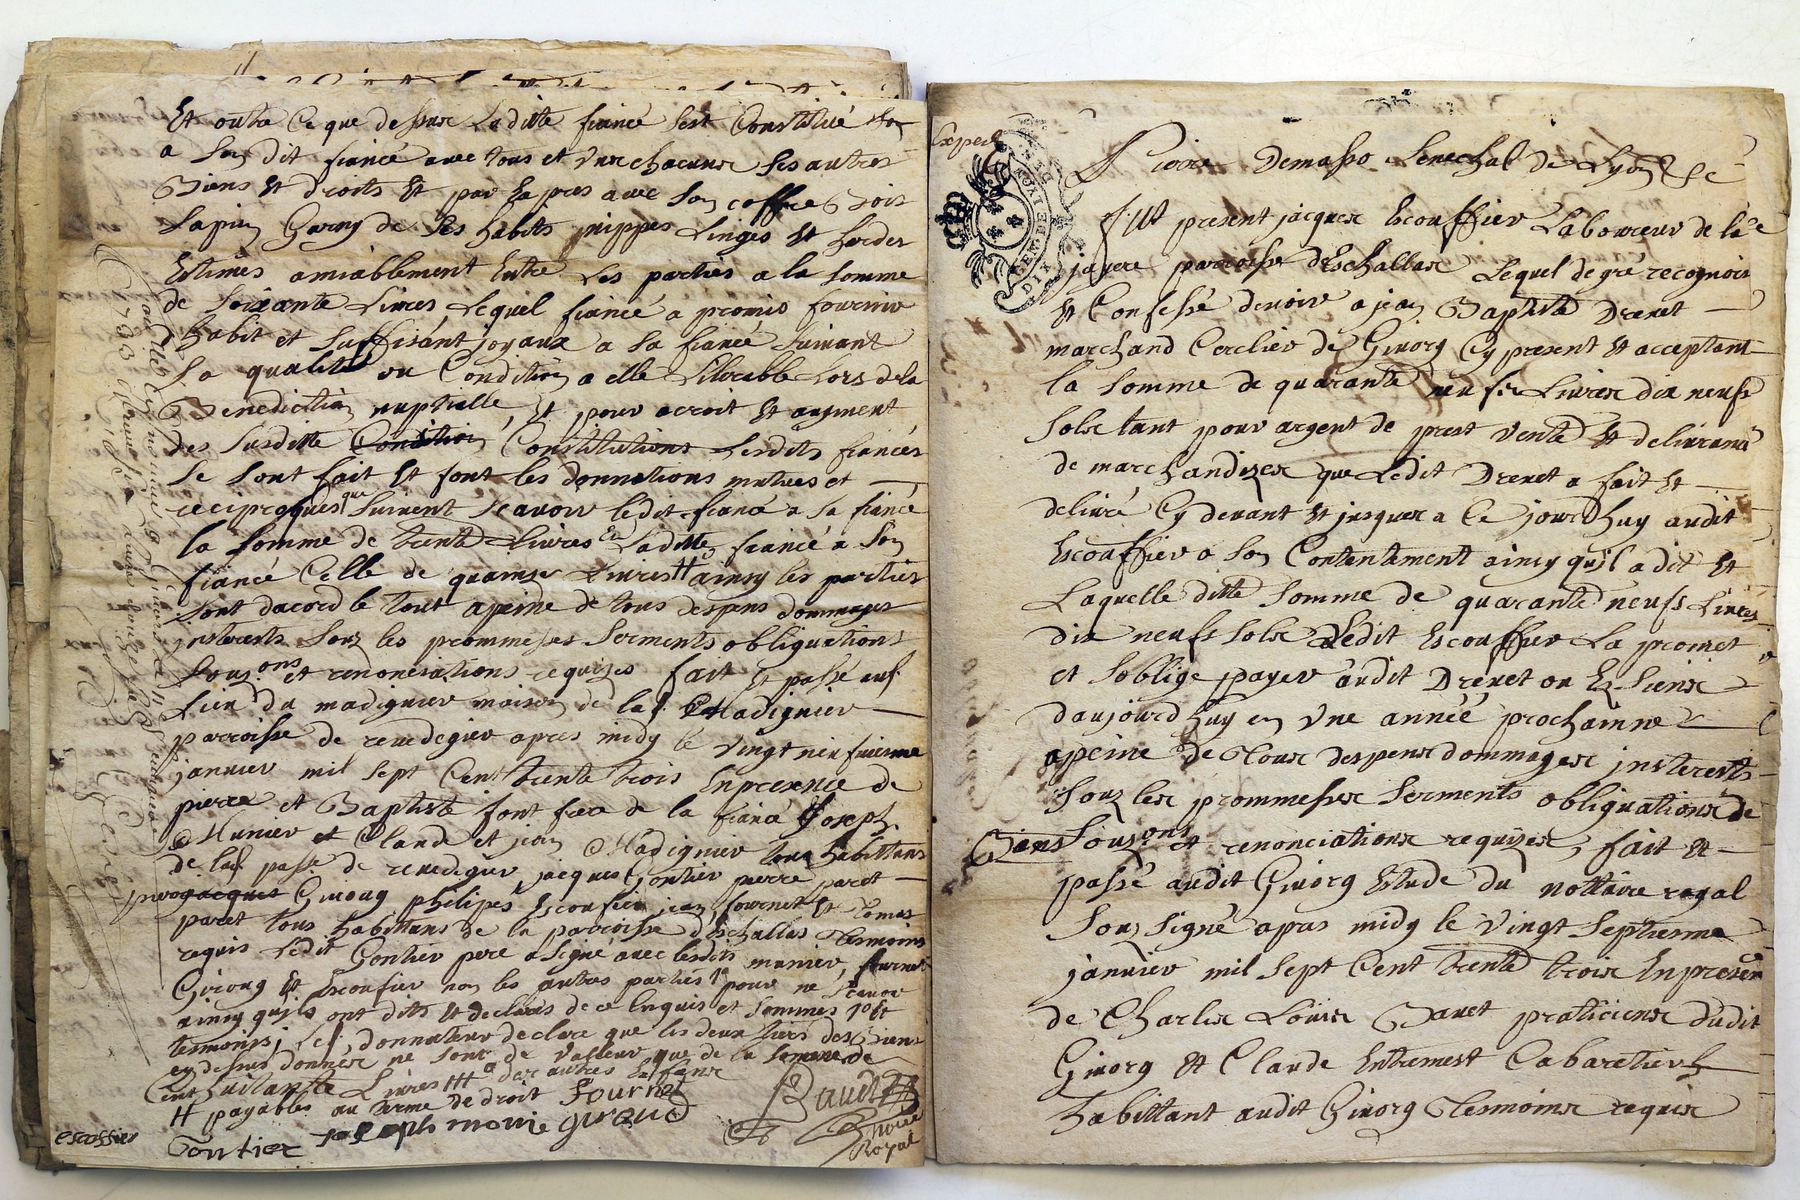 Et outre ce que dessus Laditte fiancé sest Constitué
a son dit fiancé avec tous et une chacune ses autres
Biens et droits et par exprès avec son coffre Bois
Sapin Garny de ses habits nippes Linges et hardes
Estimés amiablement Entre Les parties a la somme
de soixante Livres Lequel fiancé a promis fournir
habit et suffisant joyaux a sa fiancé suivant
sa qualité ou Condition a elle Lors de la
Benediction nuptialle, Et pour acroit Et augment
des susditte Condition Constitutions Lesdits fiancés
se sont fait Et font les donnations mutues et
reciproques que suivent scavoir ledit fiancé a sa fiancé
la somme de trente Livres Et Laditte fiancé a son
fiancé Celle de quainse Livres ++ ainsy les parties
sont dacord le tout apeine de tous despens dommages
jnterests souz les prommesses serments obliguations
souz.ons et renonciations requizes fait Et passé au
lieu du madignier maison de la Madignier
parroisse de revedegier apres midy le vingt neufvieme
janvier mil sept Cent trente trois Enpresence de
pierre et Baptiste font frere de la fiancé Joseph
Munier et Claude et jean Madignier tous habittans
de lad passe de revedegier, jacques Gontier pierre paret
jacques Giroug philipes Escoufier jean fournet Et Tomas
paret tous habittans de la parroisse deschallas Tesmoins
requis Ledit Gontier pere a signé avec lesdits munier, fournet
Giroug Et Escoufier non les autres parties pour ne scavoir
ainsy quils ont dits et declarés de ce Enquis et sommes
tesmoins; donnateur declare que les deux tiers des Biens
cy dessus donnes ne sont de valleur que de la somme de
Cent huitantte Livres
++ payables au terme de droit fournet
escoffier Tontier joseph monie giroud
Royal
Exped
DIX DEN
MOYEN
Pierre Demasso Senechal de Lyon
Fut present jacques Escouffier Laboureur de la
jayere parroisse dEschallas Lequel de gré recognoit
Et Confessé devoir a jean Baptiste Drevet
marchand Cerclier de Givorg Cy present Et acceptant
la somme de quarante neufs Livres dix neufs
sols tant pour argent de prest vente Et delivrance
de marchandizes que Ledit Drevet a fait Et
delivré Cy devant Et jusques a Ce jourdhuy audit
Escouffier a son Contentement ainsy quil a dit Et
Laquelle ditte somme de quarante neufs Livres
dix neufs sols Ledit Escouffier La promet
et soblige payer audit Drevet ou Es siens
daujourdhuy en une année prochainne
apeine de Tous despens dommages jnterests
souz les prommesses serments obliguations de
Biens souz.ons et renonciations requizes, fait Et
passé audit Givorg Estude du nottaire royal
souz signé apres midy le vingt septiesme
janvier mil sept Cent trente trois Enpresen
de Charles Louis Bavet praticiens dudit
Givorg Et Claude Entremest Cabaretier
habittant audit Givorg Tesmoins requis